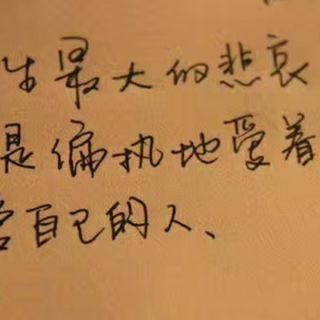 生最大的悲哀
是偏执地爱着
自己的人、